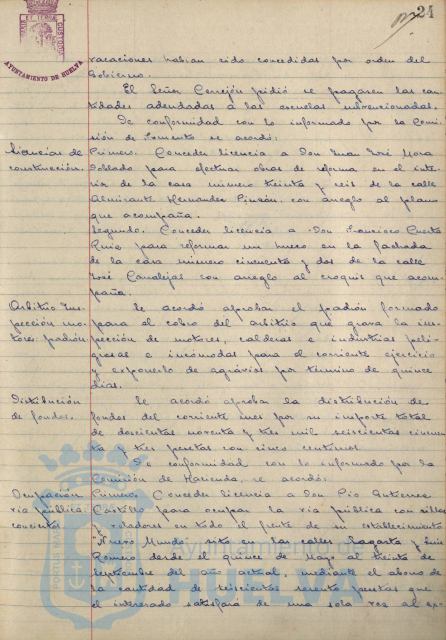 24
AYUNTAMIENTO DE HUELVA
vacaciones habian sido concedidas por orden del
Gobierno.
El Señor Cerrejón pidió se pagaren las can-
tidades adeudadas a las escuelas subvencionadas.
De conformidad con lo informado por la Comi-
sión de Fomento se acordó:
Licencias de
construcción.
Primero. Conceder licencia a Don Juan José Mora
Doblado para efectuar obras de reforma en el inte-
rior de la casa número treinta y seis de la calle
Almirante Hernandez Pinzón, con arreglo al plano
que acompaña.
Segundo. Conceder licencia a Don Francisco
Ruiz para reformar un hueco en la fachada
de la casa número cincuenta y dos de la calle
José Canalejas con arreglo al croquis que acom-
paña.
Arbitrio Ins-
pección mo-
tores: padrón.
Se acordó aprobar el padrón formado
para el cobro del arbitrio que grava la ins-
pección de motores, calderas e industrias peli-
grosas e incómodas para el corriente ejercicio
y exponerlo de agravios por término de quince
dias.
Distribución
de fondos.
Se acordó aprobar la distribución de
fondos del corriente mes por su importe total
de doscientas noventa y tres mil seiscientas cincuen-
ta y tres pesetas con cinco centimos.
De conformidad con lo informado por la
Comisión de Hacienda, se acordó:
Ocupación
via pública:
conciertos.
Primero. Conceder licencia a Don Pio Gutierrez
Castillo para ocupar la via pública con sillas
y veladores en todo el frente de su establecimiento
"Nuevo Mundo" sito en las calles Sagasta y
Romero desde el quince de Mayo al treinta de
Septiembre del año actual, mediante el abono de
la cantidad de seiscientas sesenta pesetas que
el interesado satisfará de una sola vez al ex-
Ayuntamiento de
HUELVA